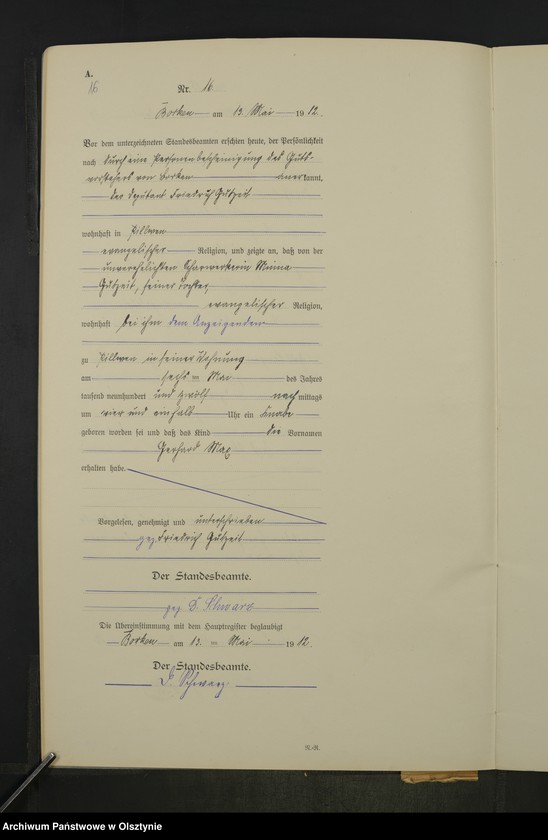 A.
16
Nr. 16
Borken am 13. Mai 1912.
Vor dem unterzeichneten Standesbeamten erschien heute, der Persönlichkeit
nach durch eine Personenbescheinigung des Guts-
vorstehers von Borken anerkannt,
der Deputant Friedrich Gutzeit
wohnhaft in Pillwen
evangelischer Religion, und zeigte an, daß von der
unverehelichten Scharwerkerin Minna
Gutzeit, seiner Tochter,
evangelischer Religion,
wohnhaft bei ihm dem Anzeigenden
zu Pillwen in seiner Wohnung
am sechsten Mai des Jahres
tausend neunhundert und zwölf nachmittags
um vier und einhalb Uhr ein Knabe
geboren worden sei und daß das Kind die Vornamen
Gerhard Max
erhalten habe.
Vorgelesen, genehmigt und unterschrieben
gez. Friedrich Gutzeit
Der Standesbeamte.
gez. D. Schwarz
Die Übereinstimmung mit dem Hauptregister beglaubigt
Borken am 13. ten Mai 1912.
Der Standesbeamte.
D. Schwarz
N.-R.
Archiwum Państwowe w Olsztynie